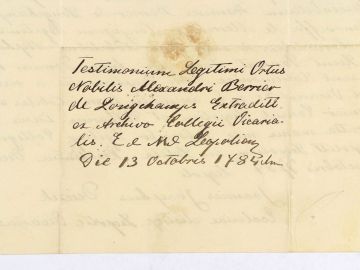 Testimonium Legitimi Ortus
Nobilis Alexandri Berrier
de Longchamps Extraditt.
ex Archivo Collegii Vicaria-
lis.
Die 13 Octobris